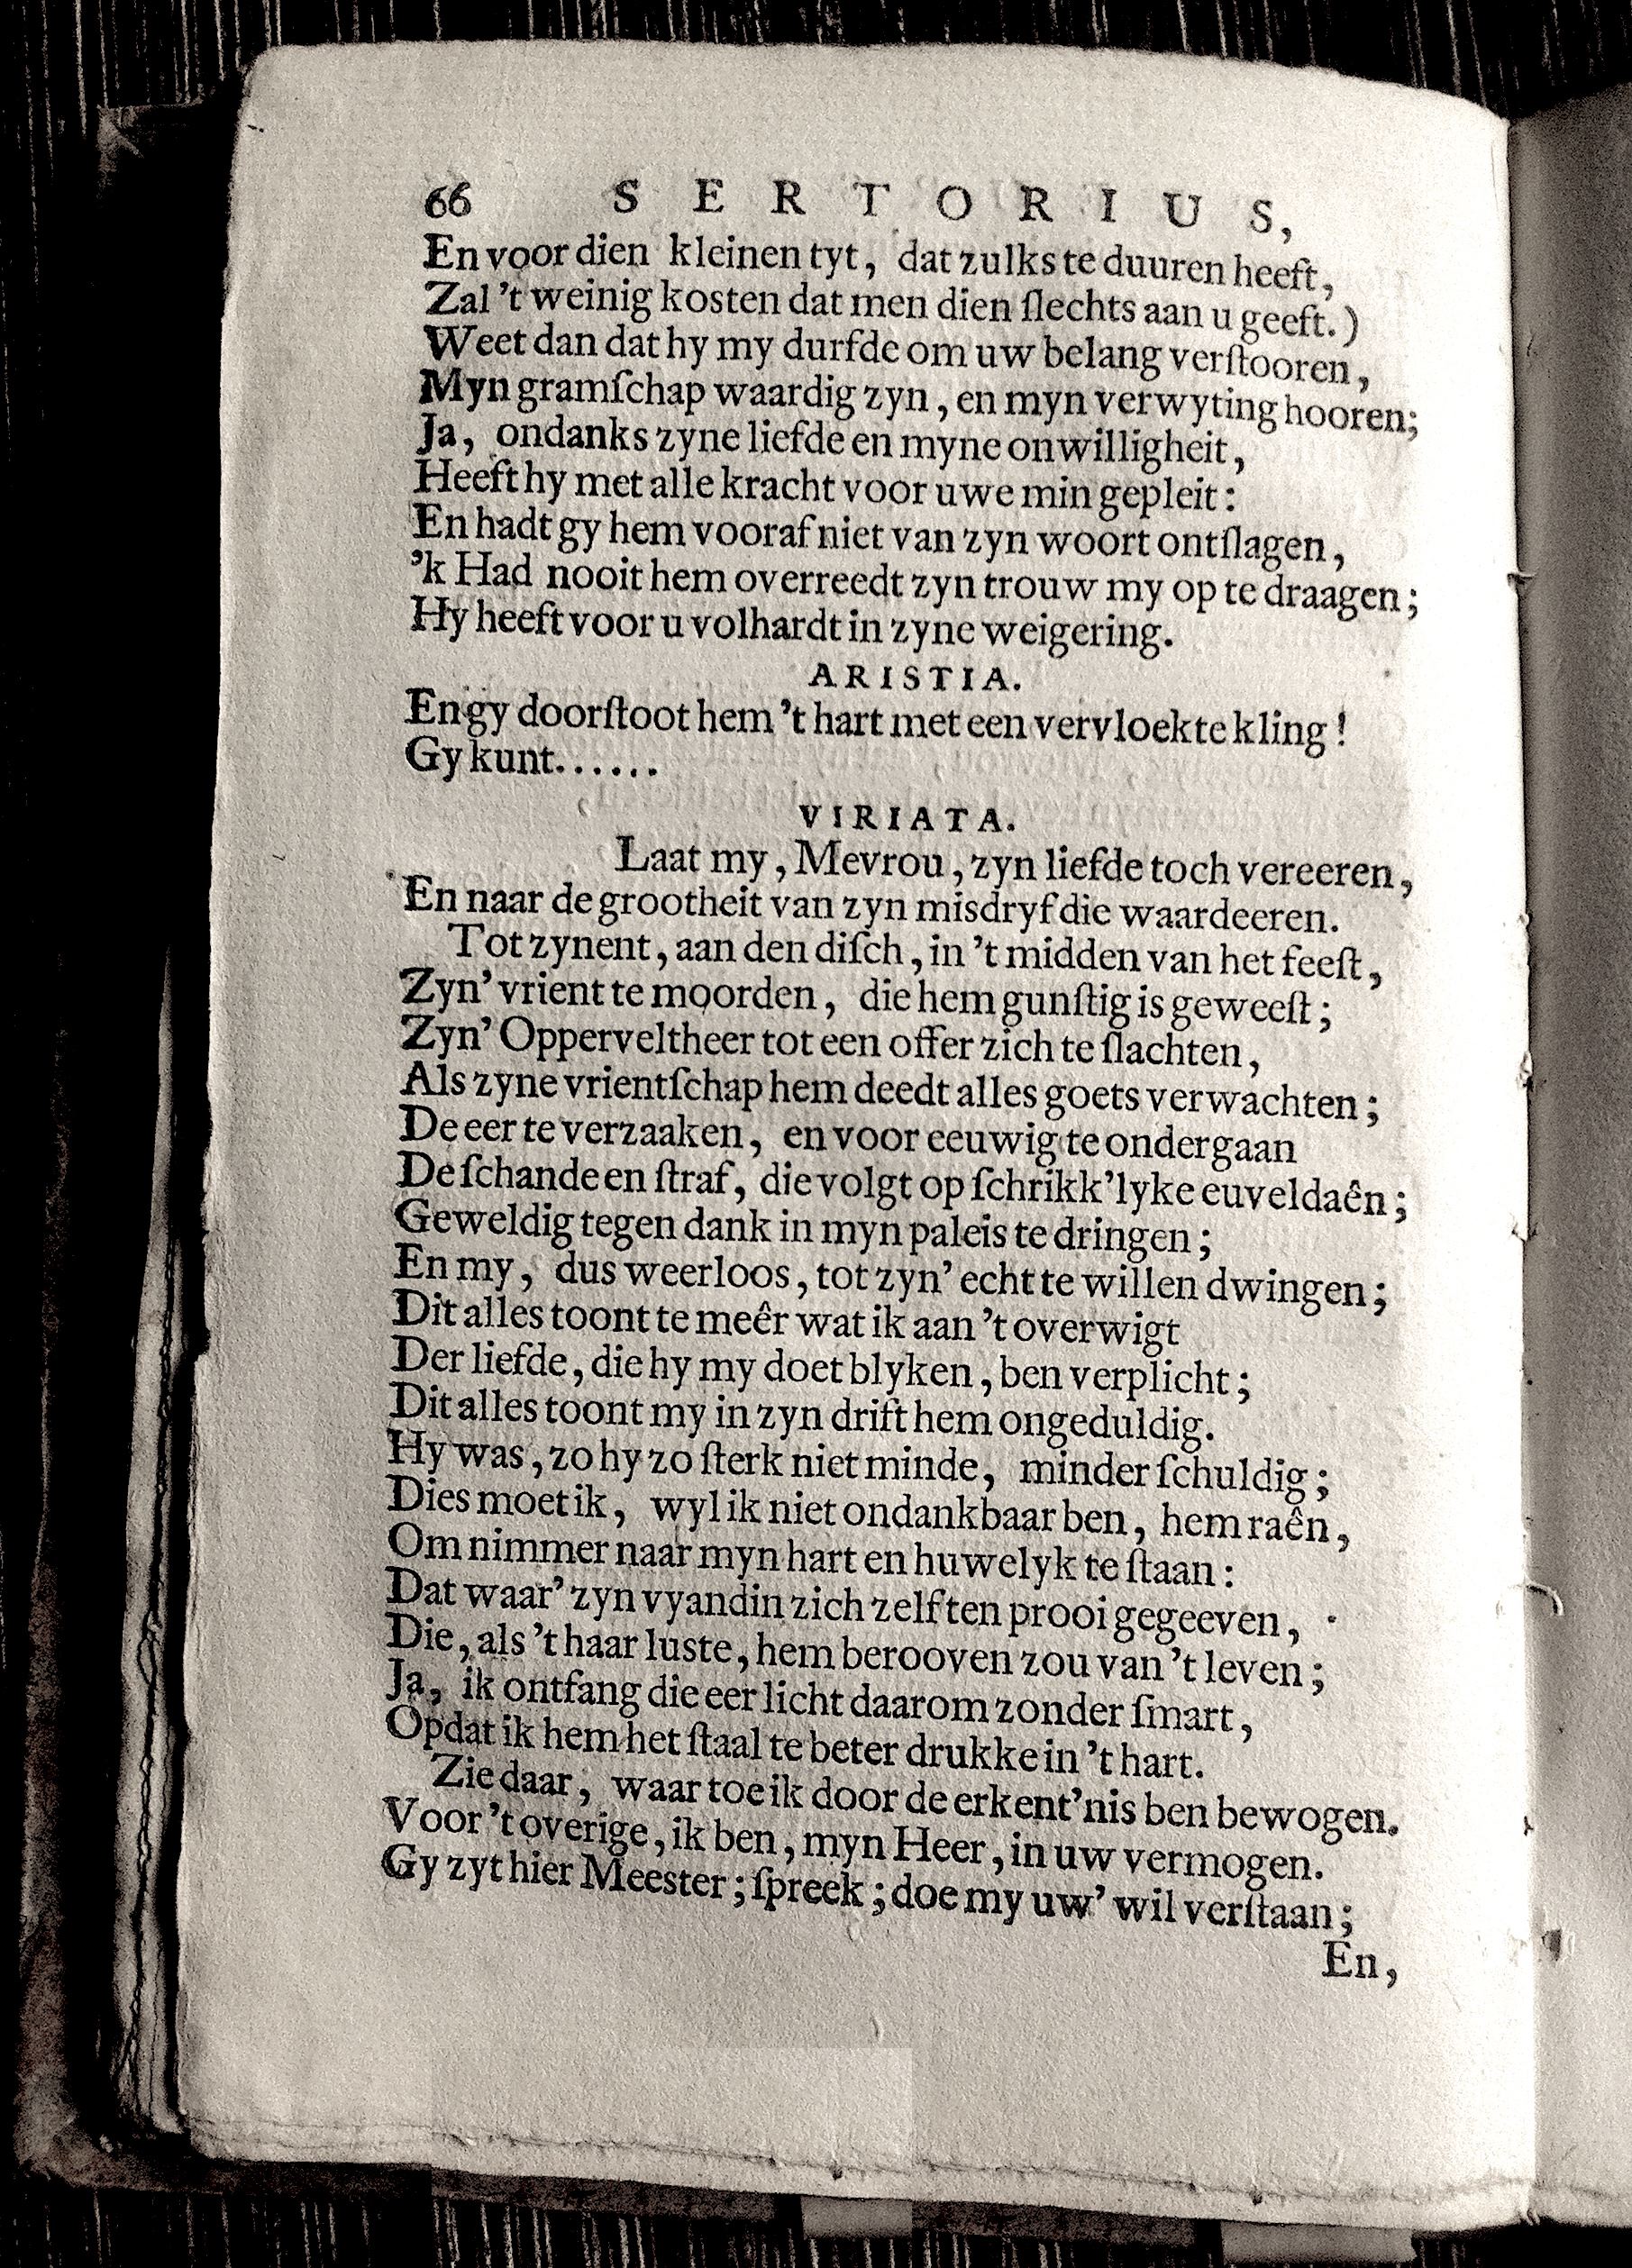 66 SERTORIUS,
En voor dien kleinen tyt, dat zulks te duuren heeft,
Zal 't weinig kosten dat men dien ſlechts aan u geeft.)
Weet dan dat hy my durfde om uw belang verſtooren,
Myn gramſchap waardig zyn, en myn verwyting hooren;
Ja, ondanks zyne liefde en myne onwilligheit,
Heeft hy met alle kracht voor uwe min gepleit:
En hadt gy hem vooraf niet van zyn woort ontſlagen,
'k Had nooit hem overreedt zyn trouw my op te draagen;
Hy heeft voor u volhardt in zyne weigering.
ARISTIA.
En gy doorſtoot hem 't hart met een vervloekte kling!
Gy kunt......
VIRIATA.
Laat my, Mevrou, zyn liefde toch vereeren,
En naar de grootheit van zyn misdryf die waardeeren.
Tot zynent, aan den diſch, in 't midden van het feeſt,
Zyn' vrient te moorden, die hem gunſtig is geweeſt;
Zyn' Opperveltheer tot een offer zich te ſlachten,
Als zyne vrientſchap hem deedt alles goets verwachten;
De eer te verzaaken, en voor eeuwig te ondergaan
De ſchande en ſtraf, die volgt op ſchrikk'lyke euveldaên;
Geweldig tegen dank in myn paleis te dringen;
En my, dus weerloos, tot zyn' echt te willen dwingen;
Dit alles toont te meêr wat ik aan 't overwigt
Der liefde, die hy my doet blyken, ben verplicht;
Dit alles toont my in zyn drift hem ongeduldig.
Hy was, zo hy zo ſterk niet minde, minder ſchuldig;
Dies moet ik, wyl ik niet ondankbaar ben, hem raên,
Om nimmer naar myn hart en huwelyk te ſtaan:
Dat waar' zyn vyandin zich zelf ten prooi gegeeven,
Die, als 't haar luste, hem berooven zou van 't leven;
Ja, ik ontfang die eer licht daarom zonder ſmart,
Opdat ik hem het ſtaal te beter drukke in 't hart.
Zie daar, waar toe ik door de erkent'nis ben bewogen.
Voor 't overige, ik ben, myn Heer, in uw vermogen.
Gy zyt hier Meester; ſpreek; doe my uw' wil verſtaan;
En,